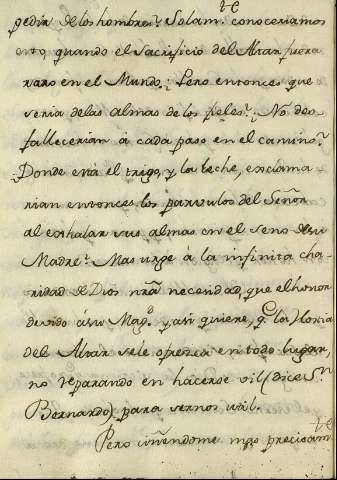 pedir de los hombres? Solam.te conoceriamos
esto, quando el sacrificio del Altar fuera
raro en el Mundo: Pero entonces que
seria delas almas de los fieles? No des-
fallecerian à cada paso en el camino?
Donde està el trigo, y la leche, exclama-
rian entonces los parvulos del Señor
al exhalar sus almas en el seno desu
Madre? Mas urge à la infinita cha-
ridad de Dios nrã necesidad, que el honor
devido àsu Mag.d y asi quiere, q.e la Hostia
del Altar sele ofrezca en todo lugar,
no reparando en hacerse vil (dice S.n
Bernardo) para sernos util.
Pero ciñendome mas precisam.te